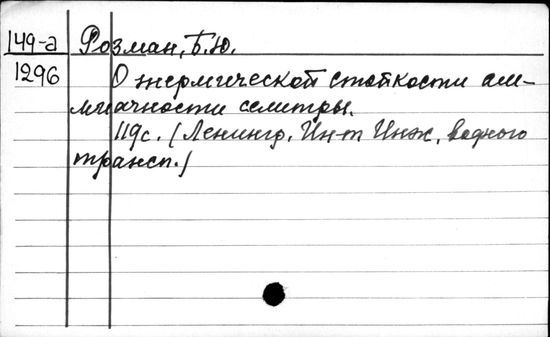 149-а Розман, Б.Ю.
1296 О термической стойкости ам-
миачности селитры.
119с. (Ленингр. Ин-т Инж. водного
трансп.)